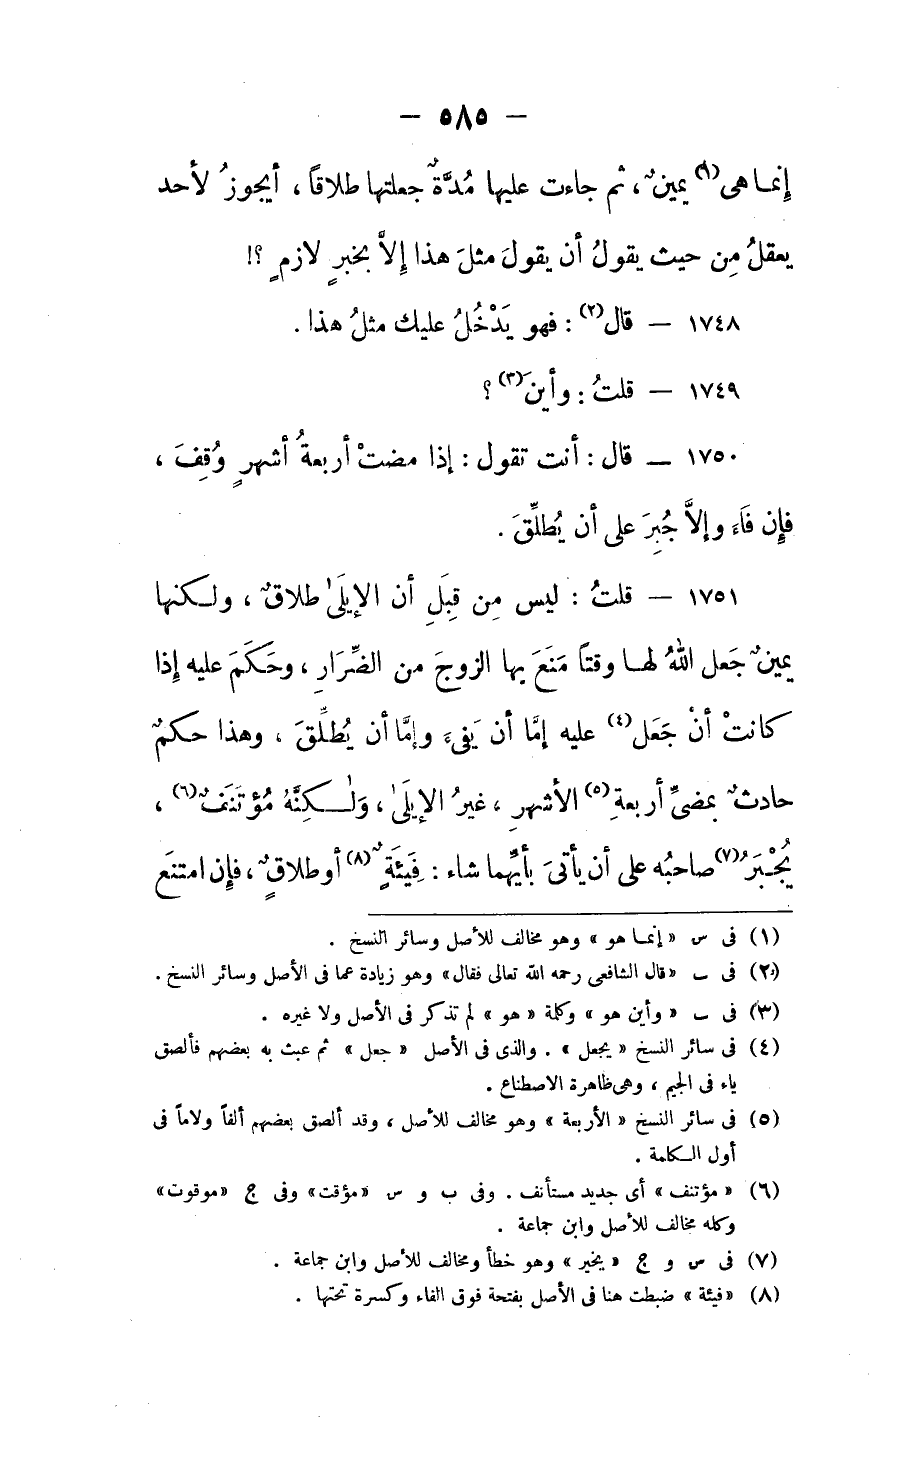 — ٥٨٥ —
إنما هى(١) يمينٌ ، ثم جاءت عليها مُدَّةٌ جعلتها طلاقاً ، أيجوزُ لأحد
يعقلُ مِن حيث يقولُ أن يقولَ مثلَ هذا إلاَّ بخبرٍ لازمٍ ؟!
١٧٤٨ — قال(٢) : فهو يَدْخُلُ عليك مثلُ هذا .
١٧٤٩ — قلتُ : وأينَ(٣) ؟
١٧٥٠ — قال : أنت تقول : إذا مضتْ أربعةُ أشهرٍ وُقِفَ ،
فإن فَاءَ وإلاَّ جُبِرَ على أن يُطلِّقَ .
١٧٥١ — قلتُ : ليس مِن قِبَلِ أن الإيلَىٰ طلاقٌ ، ولكنها
يمينٌ جَعل اللهُ لها وقتاً مَنَعَ بها الزوجَ من الضِّرَارِ ، وحَكَمَ عليه إذا
كانتْ أنْ جَعَل(٤) عليه إمَّا أن يَفىءَ وإمَّا أن يُطلِّقَ ، وهذا حكمٌ
حادثٌ بمضىِّ أربعةِ(٥) الأشهرِ ، غيرُ الإيلَىٰ ، وَلَٰكِنَّهُ مُؤتَنَفٌ(٦) ،
يُجْبَرُ(٧) صاحبُه على أن يأتىَ بأيِّهما شاء : فَِيئَةٍ(٨) أو طلاقٍ ، فإن امتنَع
(١) فى س « إنما هو » وهو مخالف للأصل وسائر النسخ .
(٢) فى ب « قال الشافعى رحمه الله تعالى فقال » وهو زيادة عما فى الأصل وسائر النسخ .
(٣) فى ب « وأين هو » وكلمة « هو » لم تذكر فى الأصل ولا غيره .
(٤) فى سائر النسخ « يجعل » . والذى فى الأصل « جعل » ثم عبث به بعضهم فألصق
ياء فى الجيم ، وهى ظاهرة الاصطناع .
(٥) فى سائر النسخ « الأربعة » وهو مخالف للأصل ، وقد ألصق بعضهم ألفاً ولاماً فى
أول الكلمة .
(٦) « مؤتنف » أى جديد مستأنف . وفى ب و س « مؤقت » وفى ج « موقوت »
وكله مخالف للأصل وابن جماعة .
(٧) فى س و ج « يخير » وهو خطأ ومخالف للأصل وابن جماعة .
(٨) « فيئة » ضبطت هنا فى الأصل بفتحة فوق الفاء وكسرة تحتها .